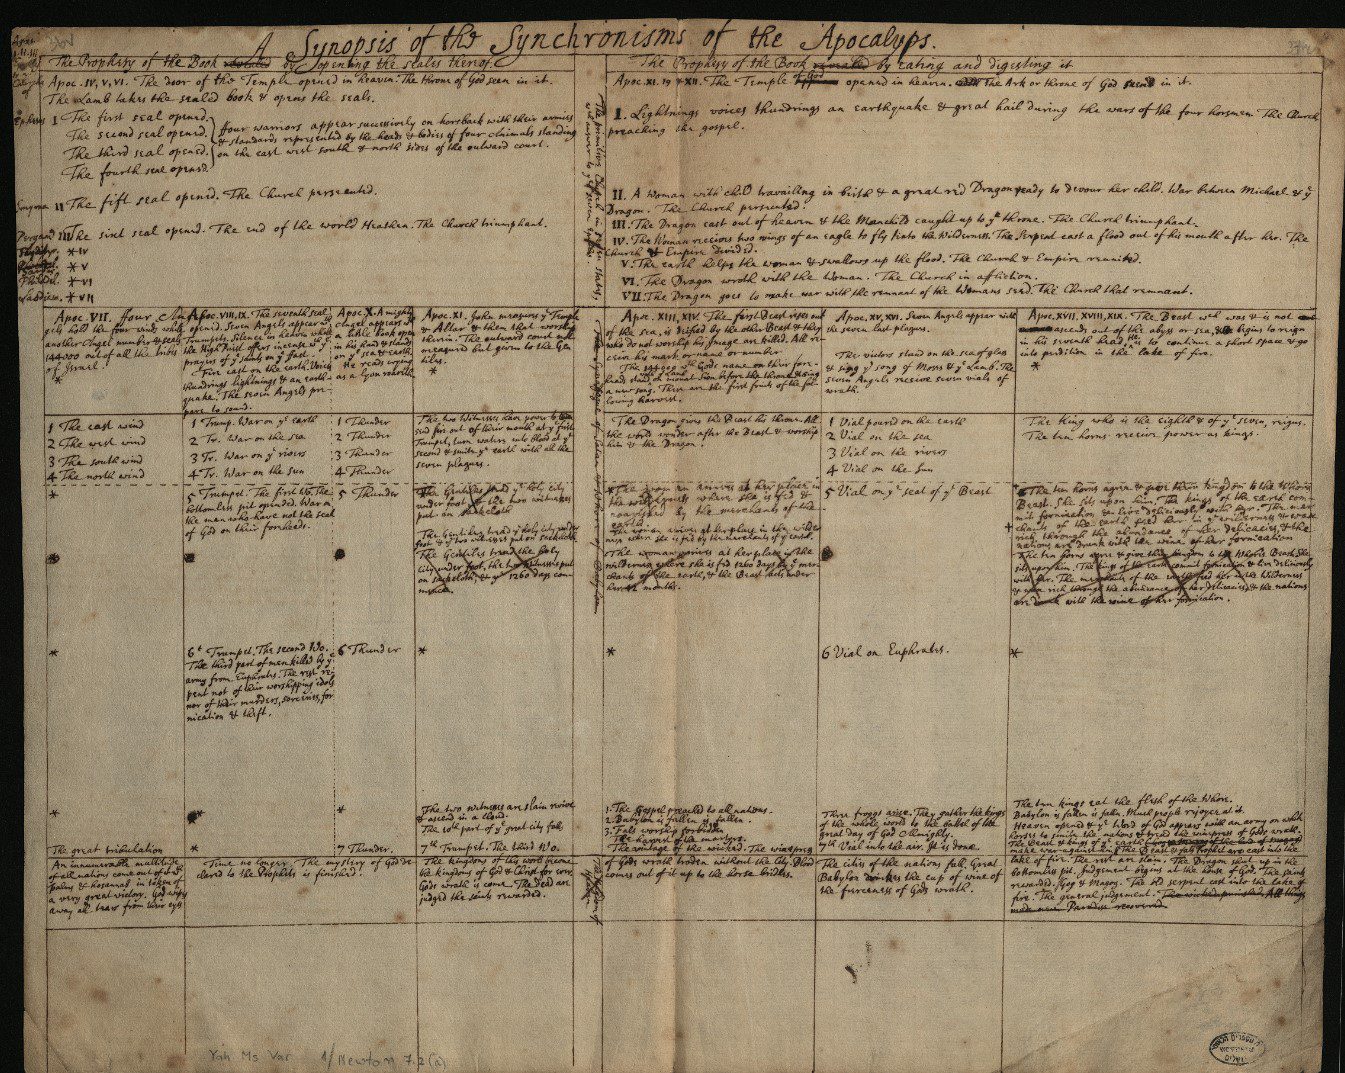 A Synopsis of the Synchronisms of the Apocalyps.
The Prophesy of the Book revealed by opening the seales thereof.
Apoc. IV, V, VI. The door of the Temple opened in heaven. The throne of God seen in it.
The Lamb takes the sealed book & opens the seals.
I The first seal opened.
The second seal opened.
The third seal opened.
The fourth seal opened.
ffour warriors appear successively on horsback with their armies
& standards represented by the heads & bodies of four animals standing
on the east west south & north sides of the outward court.
Smyrna II The fift seal opened. The Church persecuted.
Pergam III The sixt seal opened. The end of the world Heathen. The Church triumphant.
* IV
* V
Philadel. * VI
* VII
The Prophesy of the Book revealed by eating and digesting it
Apoc. XI. 19 & XII. The Temple of God opened in heaven. The Ark or throne of God seend in it.
I. Lightnings voices thundrings an earthquake & great hail during the wars of the four horsmen. The Church
preaching the gospel.
II. A Woman with child travailling in birth & a great red Dragon ready to devour her child. War between Michael & ye
Dragon. The Church persecuted.
III. The Dragon cast out of heaven & the Manchild caught up to ye throne. The Church triumphant.
IV. The Woman receives two wings of an eagle to fly into the Wilderness. The Serpent cast a flood out of his mouth after her. The
Church & Empire divided.
V. The earth helps the woman & swallows up the flood. The Church & Empire reunited.
VI. The Dragon wroth with the Woman. The Church in affliction.
VII. The Dragon goes to make war with the remnant of the Womans seed. The Church that remnant.
The primitive Church in seven states,
Apoc. VII. ffour Angels
hold the four winds while
another Angel numbers & seals
144000 out of all the tribes
of Israel.
*
Apoc. VIII, IX. The seventh seal
opened. Seven Angels appear with
Trumpets. Silence in heaven while
the High Priest offers incense with ye
prayers of ye saints on ye
Fire cast on the earth. Voices
thundrings lightnings & an earth-
quake. The seven Angels pre-
pare to sound.
Apoc. X. A mighty
Angel appears with
a little book open
in his hand & stands
on ye sea & earth,
He reads crying
as a Lyon roareth
Apoc. XI. John measures ye Temple
& Altar & them that worship
therein. The outward court not
measured but given to the Gen
tiles.
*
Apoc. XIII, XIV. The first Beast rises out
of the sea, is deified by the other Beast & they
who do not worship his Image are killed. All re-
ceive his mark or name or number
The 144000 with Gods name on their fore-
heads stand on mount Sion before the throne & sing
a new song. These are the first fruits of the fol-
lowing harvest.
Apoc. XV, XVI. Seven Angels appear with
the seven last plagues.
The victors stand on the sea of glass
& sing ye song of Moses & ye Lamb. The
seven Angels receive seven vials of
wrath.
Apoc. XVII, XVIII, XIX. The Beast wch was & is not
ascends out of the abyss or sea, & begins to reign
in his seventh head, to continue a short space & go
into perdition in the lake of fire.
*
1 The east wind
2 The west wind
3 The south wind
4 The north wind
1 Trump. War on ye earth
2 Tr. War on the sea
3 Tr. War on ye rivers
4 Tr. War on the sun
1 Thunder
2 Thunder
3 Thunder
4 Thunder
The two Witnesses have power to
send fire out of their mouth at ye first
Trumpet, turn waters into blood at ye
second & smite ye earth with all the
seven plagues.
The Dragon gives the Beast his throne. All
the world wonder after the Beast & worship
him & the Dragon.
1 Vial poured on the earth
2 Vial on the sea
3 Vial on the rivers
4 Vial on the Sun
The King who is the eighth & of ye seven, reigns.
The ten horns receive power as kings.
*
5 Trumpet. The first Wo. The
bottomless pit opened. War on
the men who have not the seal
of God on their foreheads.
5 Thunder
The Gentiles tread ye holy city
under foot & the two witnesses
put on sackcloth
The Gentiles tread ye holy city under
foot & ye two witnesses put on sackcloth.
The Gentiles tread the holy
City under foot, the two witnesses put
on sackcloth, & ye 1260 days com-
mence.
The woman arrives at her place in
the wilderness where she is fed &
nourished by the merchants of the
earth.
The woman arrives at her place in the wilder
ness where she is fed by the merchants of ye earth.
The woman arrives at her place in the
wilderness where she is fed 1260 days by ye mer-
chants of the earth, & the Beast acts under
her 42 months.
5 Vial on ye seat of ye Beast
The ten horns agree & give their kingdom to the Whores
Beast. She sits upon him. The kings of the earth com-
mit fornication & live deliciously with her. The mer-
chants of the earth feed her in ye wilderness & wax
rich through the abundance of her delicacies, & the
nations are drunk with the wine of her fornication
The ten horns agree & give their kingdom to the Whores Beast. She
sits upon him. The kings of the earth commit fornication & live deliciously
with her. The merchants of the earth feed her in the Wilderness
& wax rich through the abundance of her delicacies, & the nations
are drunk with the wine of her fornication.
*
6t Trumpet. The second Wo.
The third part of men killed by ye
army from Euphrates. The rest re-
pent not of their worshipping idols
nor of their murders, sorceries, for
nication & theft.
6 Thunder
*
*
6 Vial on Euphrates.
*
*
*
*
The great tribulation
*
7 Thunder.
The two witnesses are slain revive
& ascend in a cloud.
The 10th part of ye great city falls
7th Trumpet. The third Wo.
1. The Gospel preached to all nations.
2. Babylon is fallen is fallen.
3. Fals worship forbidden
The harvest of the martyrs.
The vintage of the wicked. The winepress
Three froggs arise. They gather the kings
of the whole world to the battel of the
great day of God Almighty.
7th Vial into the air. It is done.
The ten kings eat the flesh of the Whore.
Babylon is fallen is fallen. Much people rejoyce at it.
Heaven opened & ye Word of God appears with an army on white
horses to smite the nations & tread the winepress of Gods wrath.
The Beast & kings of ye earth
make war against him. The Beast & fals Prophet are cast into the
lake of fire. The rest are slain. The Dragon shut up in the
bottomless pit. Judgment begins at the house of God. The saints
rewarded. Gog & Magog. The old serpent cast into the lake of
fire. The general judgment. The wicked punished. All things
made new. Paradise recovered.
An innumerable multitude
of all nations come out of it wth
palms & hosannas in token of
a very great victory. God wipes
away all tears from their eyes
Time no longer. The mystery of God de
clared to the Prophets is finished.
The kingdoms of this world become
the kingdoms of God & Christ for ever.
Gods wrath is come. The dead are
judged the saints rewarded.
of Gods wrath troden without the City. Blood
comes out of it up to the horse bridles.
The cities of the nations fall. Great
Babylon drinkes the cup of wine of
the fierceness of Gods wrath.
Yah Ms Var 1/ Newton 7.2 (a)